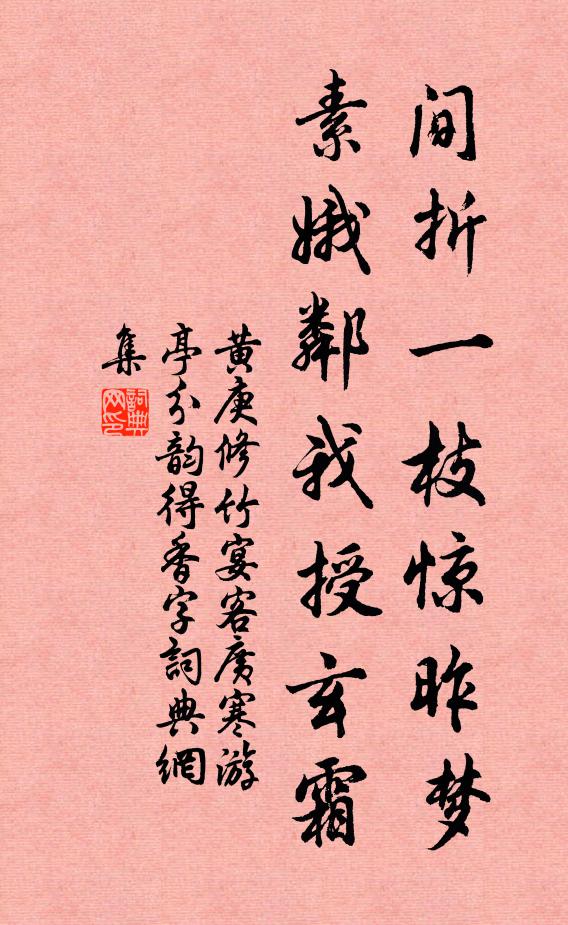 间折一枝惊昨梦
素娥鄰我授玄霜
黄庚修竹宴客廣寒游
亭分韵得香字詞典網
集
詞典
网印